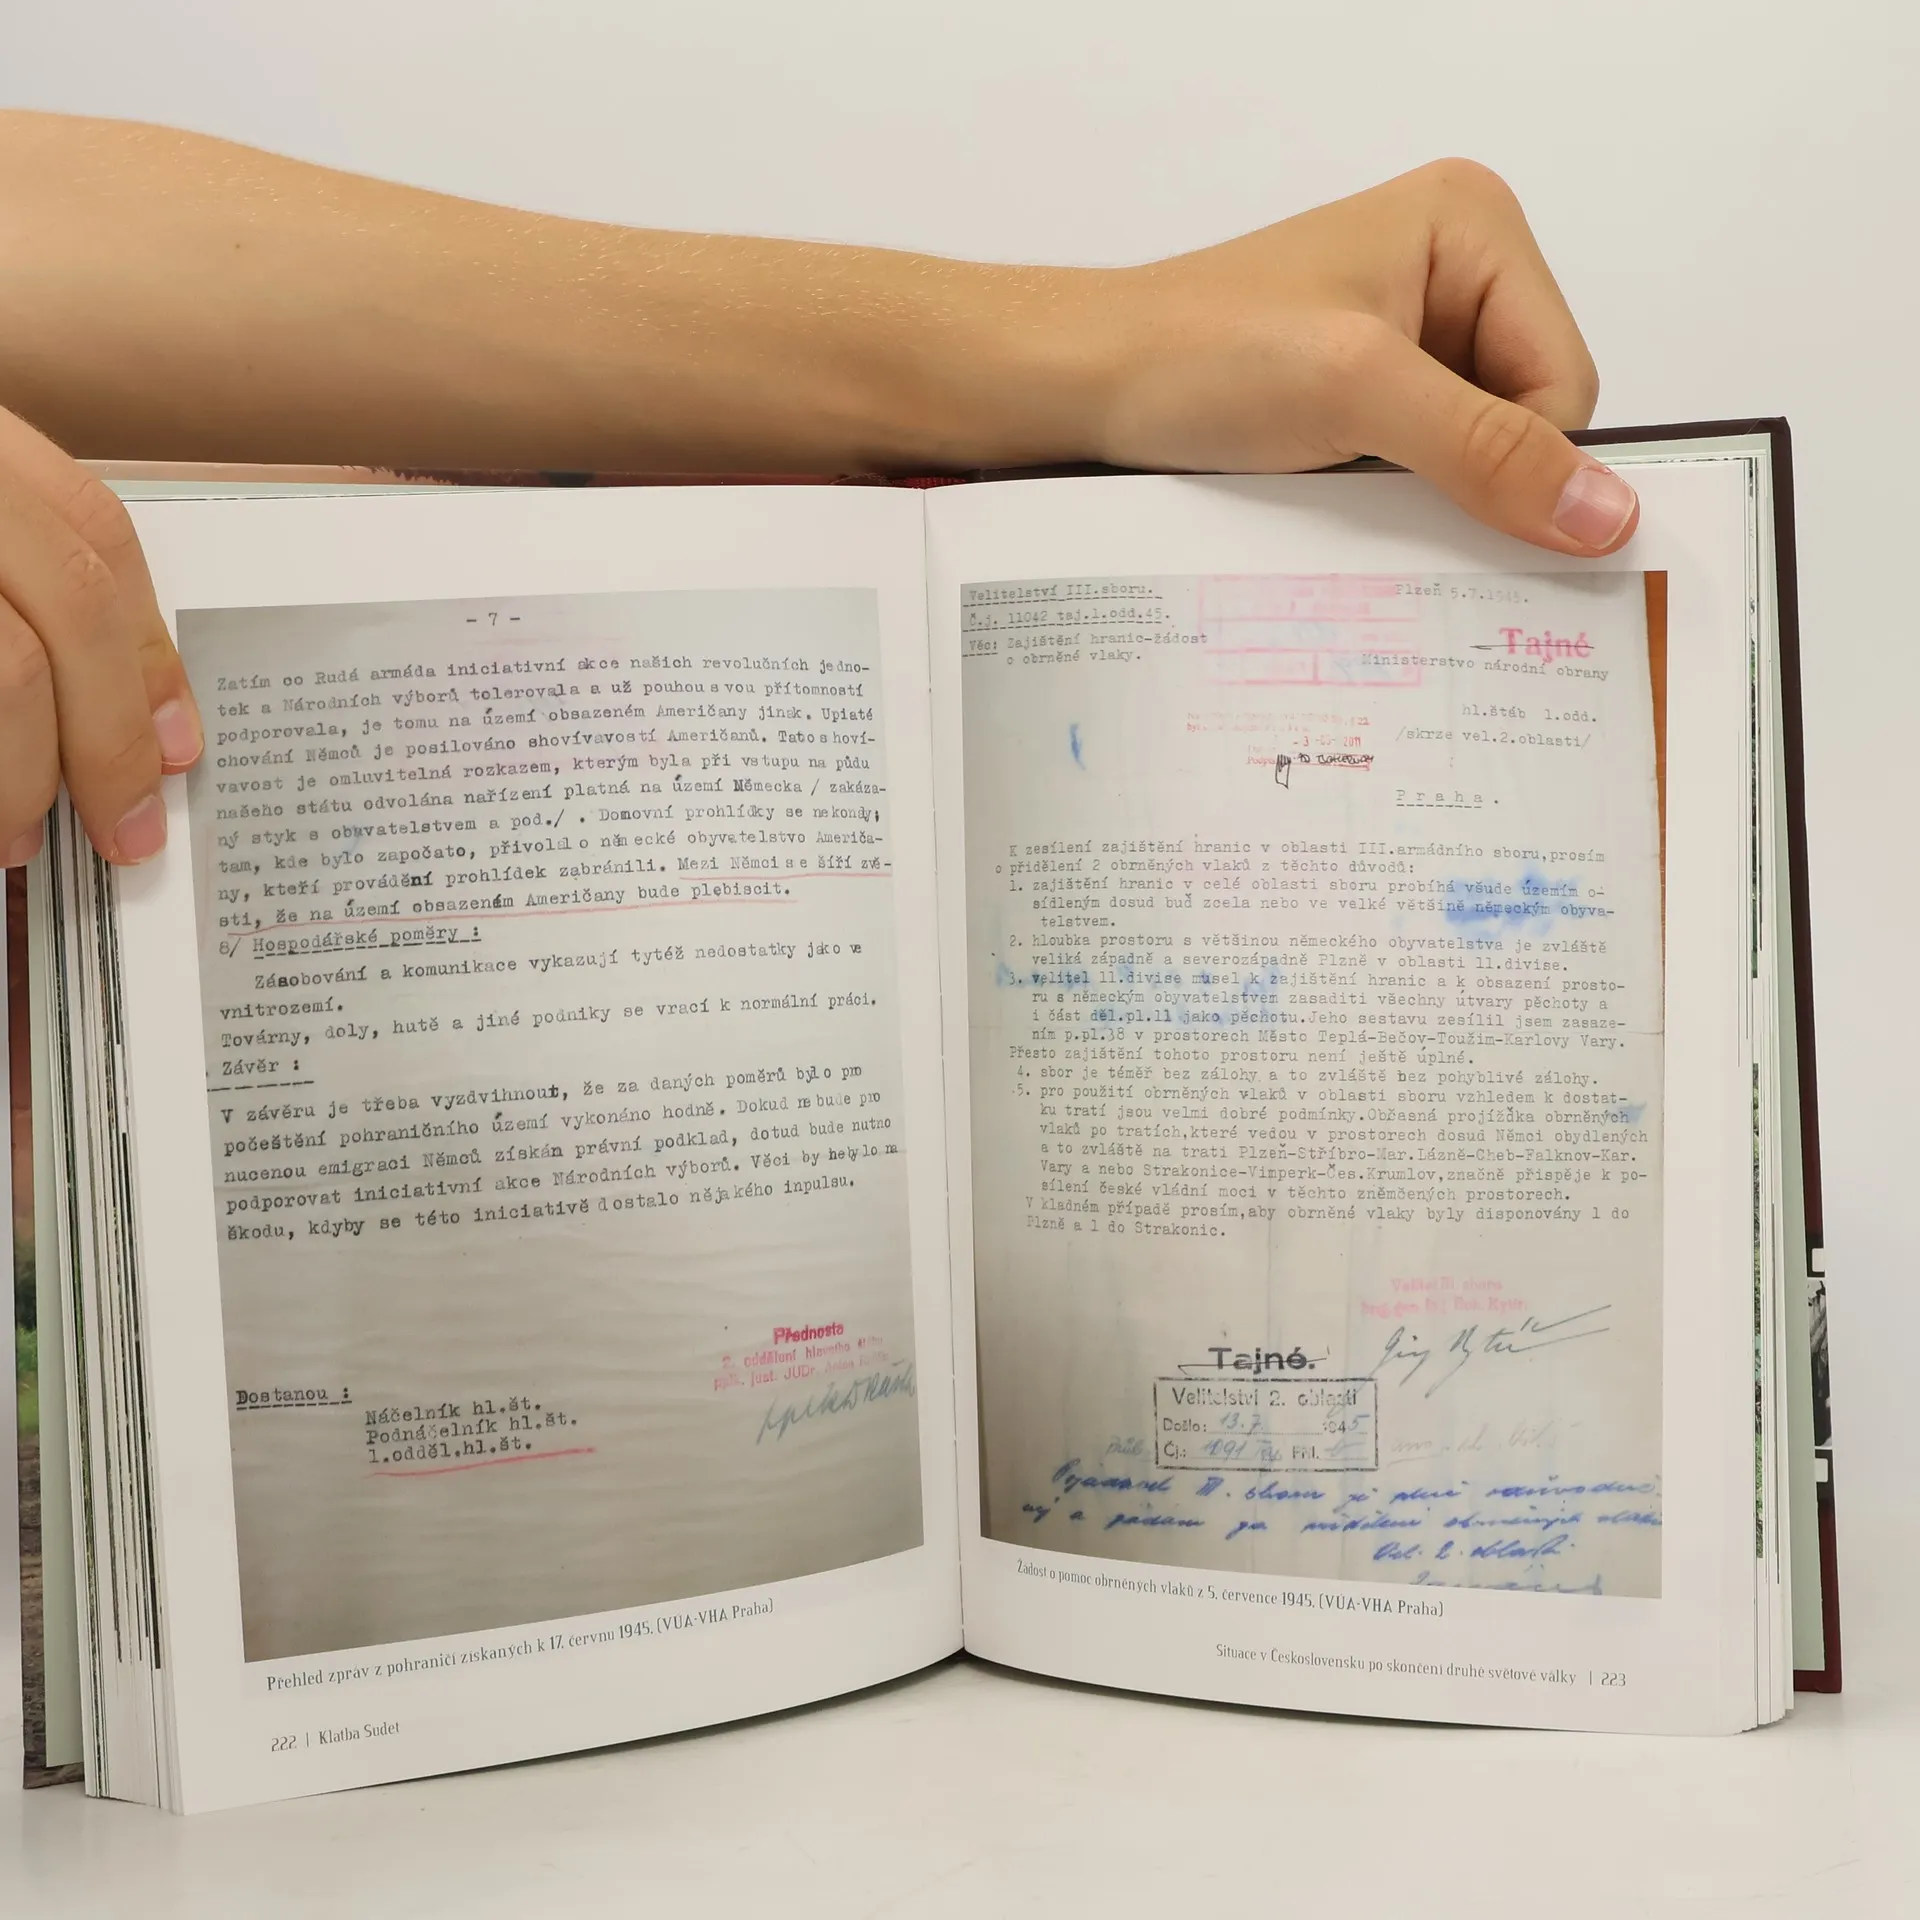 - 7 -
Zatím co Rudá armáda iniciativní akce našich revolučních jedno-
tek a Národních výborů tolerovala a už pouhou svou přítomností
podporovala, je tomu na území obsazeném Američany jinak. Upiaté
chování Němců je posilováno shovívavostí Američanů. Tato shoví-
vavost je omluvitelná rozkazem, kterým byla při vstupu na půdu
našeho státu odvolána nařízení platná na území Německa / zakáza-
ný styk s obyvatelstvem a pod./ . Domovní prohlídky se nekonaly;
tam, kde bylo započato, přivolalo německé obyvatelstvo Američa-
ny, kteří provádění prohlídek zabránili. Mezi Němci se šíří zvě-
sti, že na území obsazeném Američany bude plebiscit.
8/ Hospodářské poměry :
Zásobování a komunikace vykazují tytéž nedostatky jako ve
vnitrozemí.
Továrny, doly, hutě a jiné podniky se vrací k normální práci.
Závěr :
V závěru je třeba vyzdvihnout, že za daných poměrů bylo pro
počeštění pohraničního území vykonáno hodně. Dokud nebude pro
nucenou emigraci Němců získán právní podklad, dotud bude nutno
podporovat iniciativní akce Národních výborů. Věci by nebylo na
škodu, kdyby se této iniciativě dostalo nějakého inpulsu.
Přednosta
2. oddělení hlavního
pplk. just. JUDr.
Dostanou :
Náčelník hl.št.
Podnáčelník hl.št.
1.odděl.hl.št.
Přehled zpráv z pohraničí získaných k 17. červnu 1945. (VÚA-VHA Praha)
222 | Klatba Sudet
Velitelství III.sboru.
Č.j. 11042 taj.1.odd.45.
Věc: Zajištění hranic-žádost
o obrněné vlaky.
Plzeň 5.7.1945.
Tajné
Ministerstvo národní obrany
hl.štáb 1.odd.
/skrze vel.2.oblasti/
2011
Praha.
K zesílení zajištění hranic v oblasti III.armádního sboru,prosím
o přidělení 2 obrněných vlaků z těchto důvodů:
1. zajištění hranic v celé oblasti sboru probíhá všude územím o-
sídleným dosud buď zcela nebo ve velké většině německým obyva-
telstvem.
2. hloubka prostoru s většinou německého obyvatelstva je zvláště
veliká západně a severozápadně Plzně v oblasti 11.divise.
3. velitel 11.divise musel k zajištění hranic a k obsazení prosto-
ru s německým obyvatelstvem zasaditi všechny útvary pěchoty a
i část děl.pl.11 jako pěchotu.Jeho sestavu zesílil jsem zasaze-
ním p.pl.38 v prostorech Město Teplá-Bečov-Toužim-Karlovy Vary.
Přesto zajištění tohoto prostoru není ještě úplné.
4. sbor je téměř bez zálohy a to zvláště bez pohyblivé zálohy.
5. pro použití obrněných vlaků v oblasti sboru vzhledem k dostat-
ku tratí jsou velmi dobré podmínky.Občasná projížďka obrněných
vlaků po tratích,které vedou v prostorech dosud Němci obydlených
a to zvláště na trati Plzeň-Stříbro-Mar.Lázně-Cheb-Falknov-Kar.
Vary a nebo Strakonice-Vimperk-Čes.Krumlov,značně přispěje k po-
sílení české vládní moci v těchto zněmčených prostorech.
V kladném případě prosím,aby obrněné vlaky byly disponovány 1 do
Plzně a 1 do Strakonic.
Velitel III. sboru
Tajné.
Velitelství 2. oblasti
Došlo: 13.7. 1945
Čj.: 1091 Příl.
Požadavek III. sboru je plně odůvodně-
ný a žádám za přidělení obrněných vlaků
Vel. 2. oblasti
Žádost o pomoc obrněných vlaků z 5. července 1945. (VÚA-VHA Praha)
Situace v Československu po skončení druhé světové války | 223